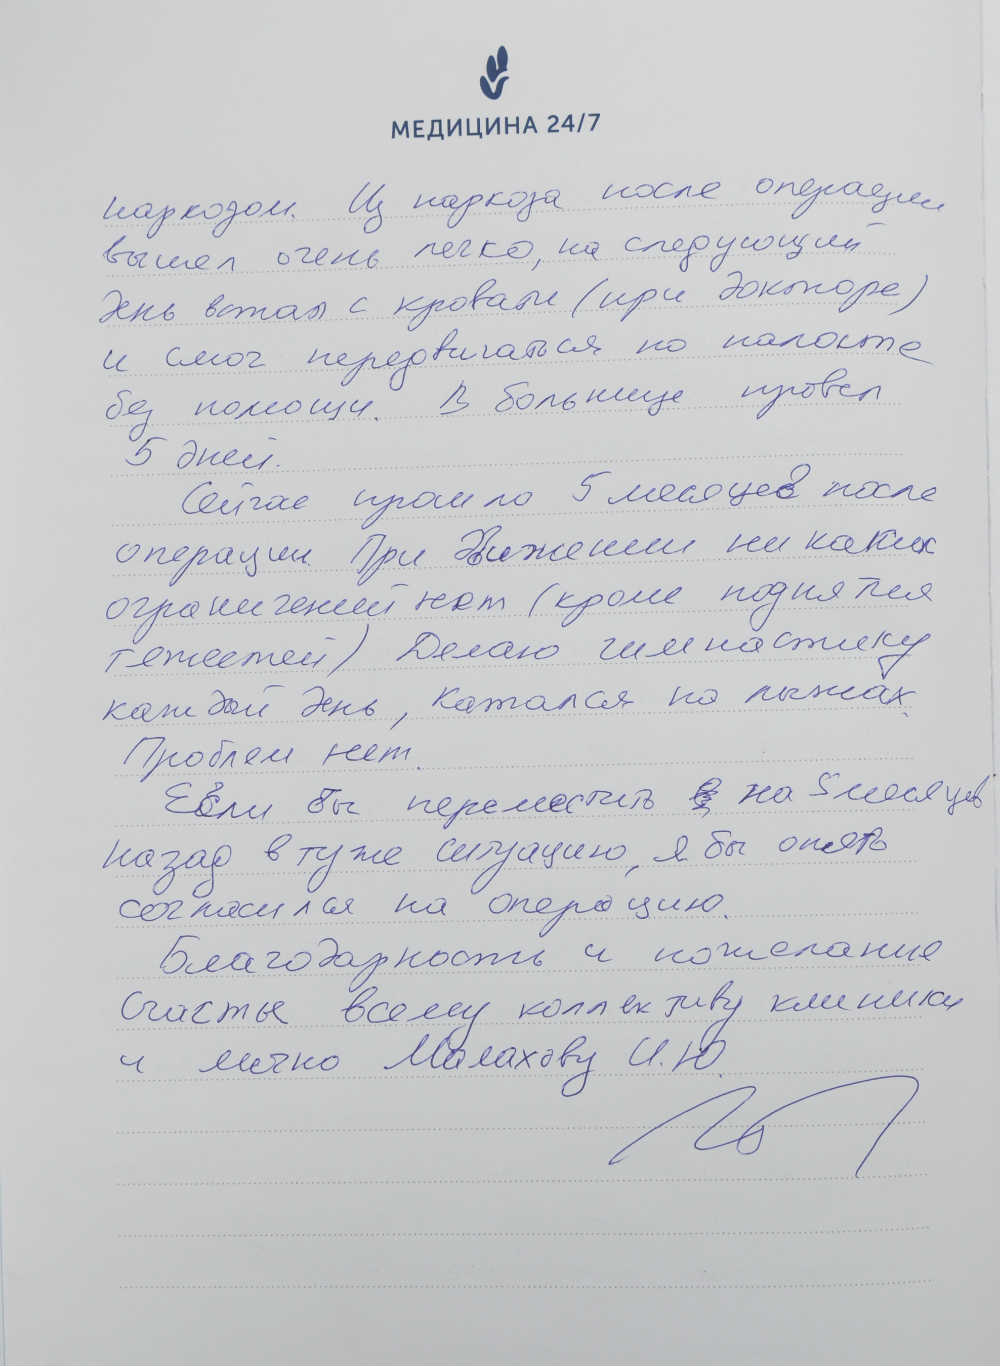 МЕДИЦИНА 24/7
наркозом. Из наркоза после операции
вышел очень легко, на следующий
день встал с кровати (при докторе)
и смог передвигаться по палате
без помощи. В больнице провел
5 дней.
Сейчас прошло 5 месяцев после
операции. При движении никаких
ограничений нет (кроме поднятия
тяжестей) Делаю гимнастику
каждый день, катался на лыжах.
Проблем нет.
Если бы переместить на 5 месяцев
назад в ту же ситуацию, я бы опять
согласился на операцию.
Благодарность и пожелание
счастье всему коллективу клиники
и лично Малахову И.Ю.